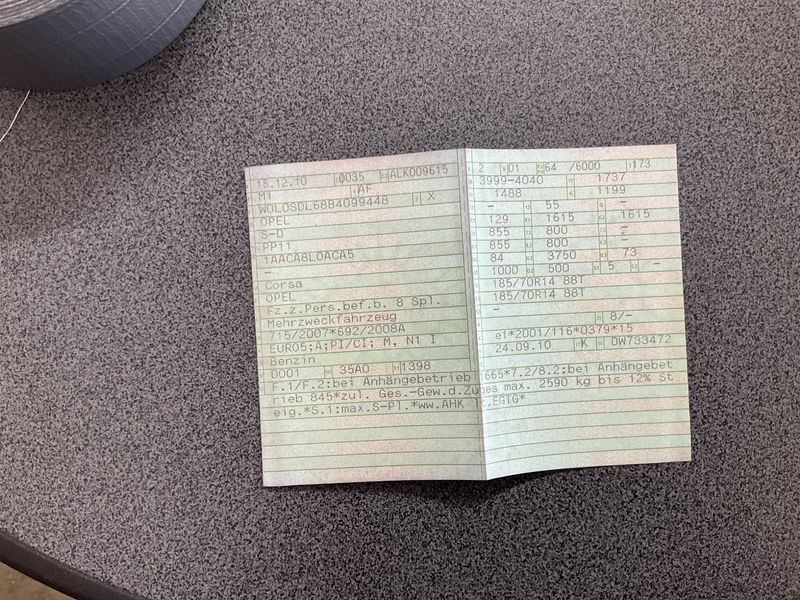 15.12.10 0035 ALK009615
M1 AF
W0L0SDL68B4099448 X
OPEL
S-D
PP11
1AACA8L0ACA5
-
Corsa
OPEL
Fz.z.Pers.bef.b. 8 Spl.
Mehrzweckfahrzeug
715/2007*692/2008A
EURO5;A;PI/CI; M, N1 I
Benzin
0001 35A0 1398
F.1/F.2:bei Anhängebetrieb
rieb 845*zul. Ges.-Gew.d.Zu
eig.*S.1:max.S-Pl.*ww.AHK
2 01 64 /6000 173
3999-4040 1737
1488 1199
- 55 -
129 1615 1615
855 800 -
855 800 -
84 3750 73
1000 500 5 -
185/70R14 88T
185/70R14 88T
-
8/-
e1*2001/116*0379*15
24.09.10 K OW733472
1665*7.2/8.2:bei Anhängebet
ges max. 2590 kg bis 12% St
.EGTG*